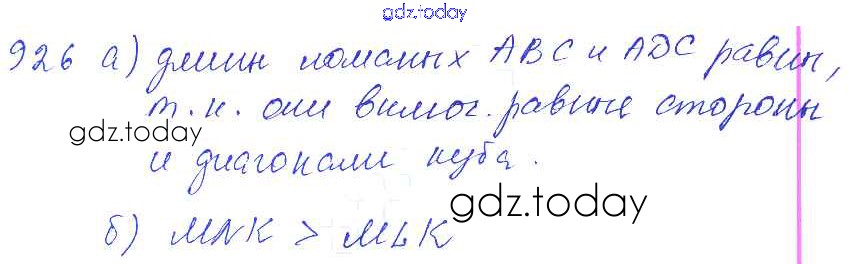 gdz.today
926 а) длин ломаных ABC и ADC равны,
т.к. они включ. равные стороны
gdz.today
и диагонали куба.
gdz.today
б) MNK > MLK